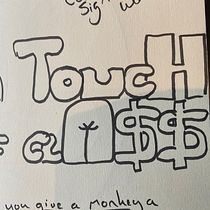 Sign
TOUCH
F CLA$$
you give a monkey a